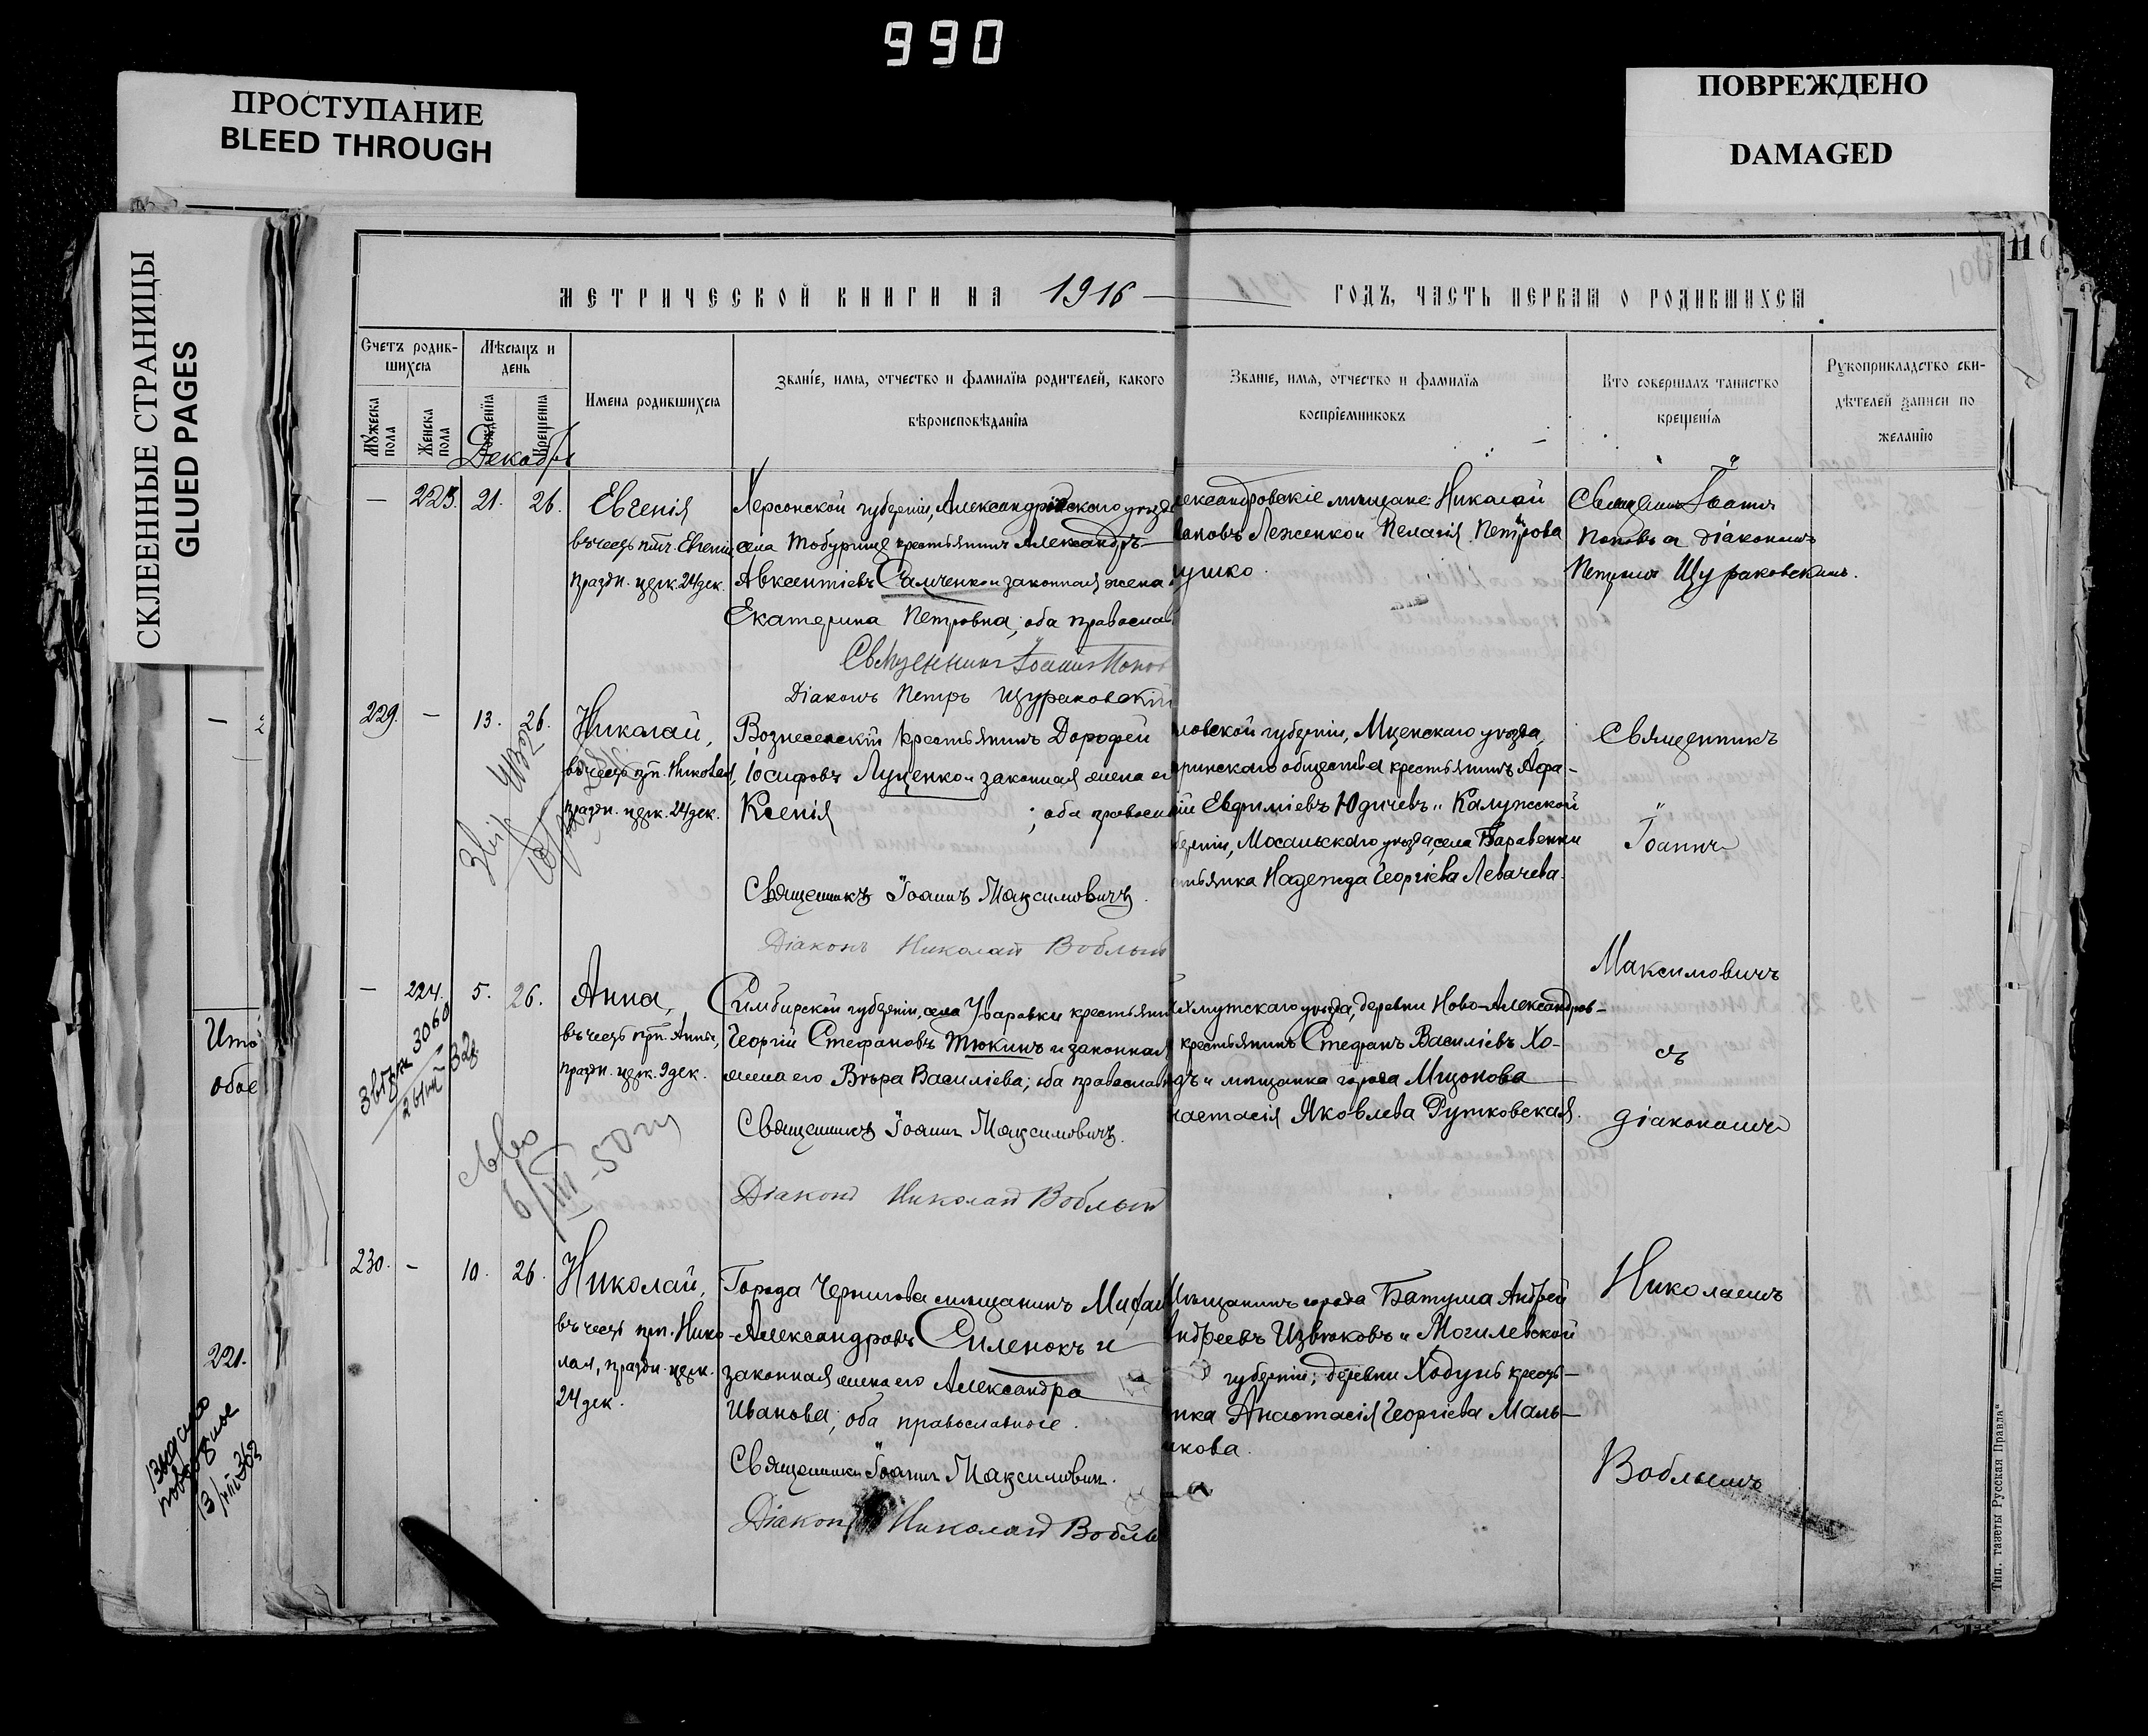 990
ПРОСТУПАНИЕ
BLEED THROUGH
ПОВРЕЖДЕНО
DAMAGED
СКЛЕЕННЫЕ СТРАНИЦЫ
GLUED PAGES
110
МЕТРИЧЕСКОЙ КНИГИ НА 1916
ГОДЪ, ЧАСТЬ ПЕРВАЯ О РОДИВШИХСЯ
Счетъ родив-
шихся
Мѣсяцъ и
день
Мужеска
пола
Женска
пола
Рожденїя
Крещенїя
Имена родившихся
Званїе, имя, отчество и фамилїя родителей, какого
вѣроисповѣданїя
Званїе, имя, отчество и фамилїя
воспрїемниковъ
Кто совершалъ таинство
крещенїя
Рукоприкладство сви-
дѣтелей записи по
желанїю
Декабрь
— 223. 21. 26.
Евгенія
въ честь пмч. Евгеніи
праздн. церк. 24 дек.
Херсонской губерніи, Александрійскаго уѣзда
села крестьянинъ Александръ
Авксентіевъ Самченко и законная жена
Екатерина Петровна; оба православ
Священникъ Іоаннъ Попов
Діаконъ Петръ Щураковскій
лександровскіе мѣщане: Николай
ановъ Леженко и Пелагія Петрова
ушко.
Священник Іоаннъ
Поповъ съ діакономъ
Петромъ Щураковскимъ.
229. — 13. 26.
Николай,
въ честь пр. Николая,
праздн. церк. 24 дек.
Вознесенскій крестьянинъ Дорофей
Іосифовъ Луценко и законная жена ег
Ксенія ; оба правосл
Священникъ Іоаннъ Максимовичъ.
Діаконъ Николай Воблый
ловской губерніи, Мценскаго уѣзда,
ринскаго общества крестьянинъ Афа-
ій Евфиміевъ Юдичевъ и Калужской
берніи, Мосальскаго уѣзда, села Баравенки
тьянка Надежда Георгіева Левачева.
Священникъ
Іоаннъ
Максимовичъ
съ
діакономъ
Николаемъ
Воблымъ
— 224. 5. 26.
Анна,
въ честь прп. Анны,
праздн. церк. 9 дек.
Симбирской губерніи, села Уваровки крестьяни
Георгій Стефановъ Тюкинъ и законная
жена его Вѣра Василіева; оба православн
Священникъ Іоаннъ Максимовичъ.
Діаконъ Николай Воблый
уѣзда, деревни Ново-Александров-
крестьянинъ Стефанъ Василіевъ Хо-
дъ и мѣщанка города Мщонова
настасія Яковлева Рутковская.
230. — 10. 26.
Николай,
въ честь прп. Нико-
лая, праздн. церк.
24 дек.
Города Чернигова мѣщанинъ Михаи
Александровъ Силенокъ и
законная жена его Александра
Иванова; оба православные.
Священникъ Іоаннъ Максимович.
Діаконъ Николай Воблы
Мѣщанинъ города Батума Андрей
Андреевъ Извѣковъ и Могилевской
губерніи; деревни Ходунь кресть-
нка Анастасія Георгіева Маль-
кова.
Итo
обое
221.
Тип. газеты „Русская Правда“